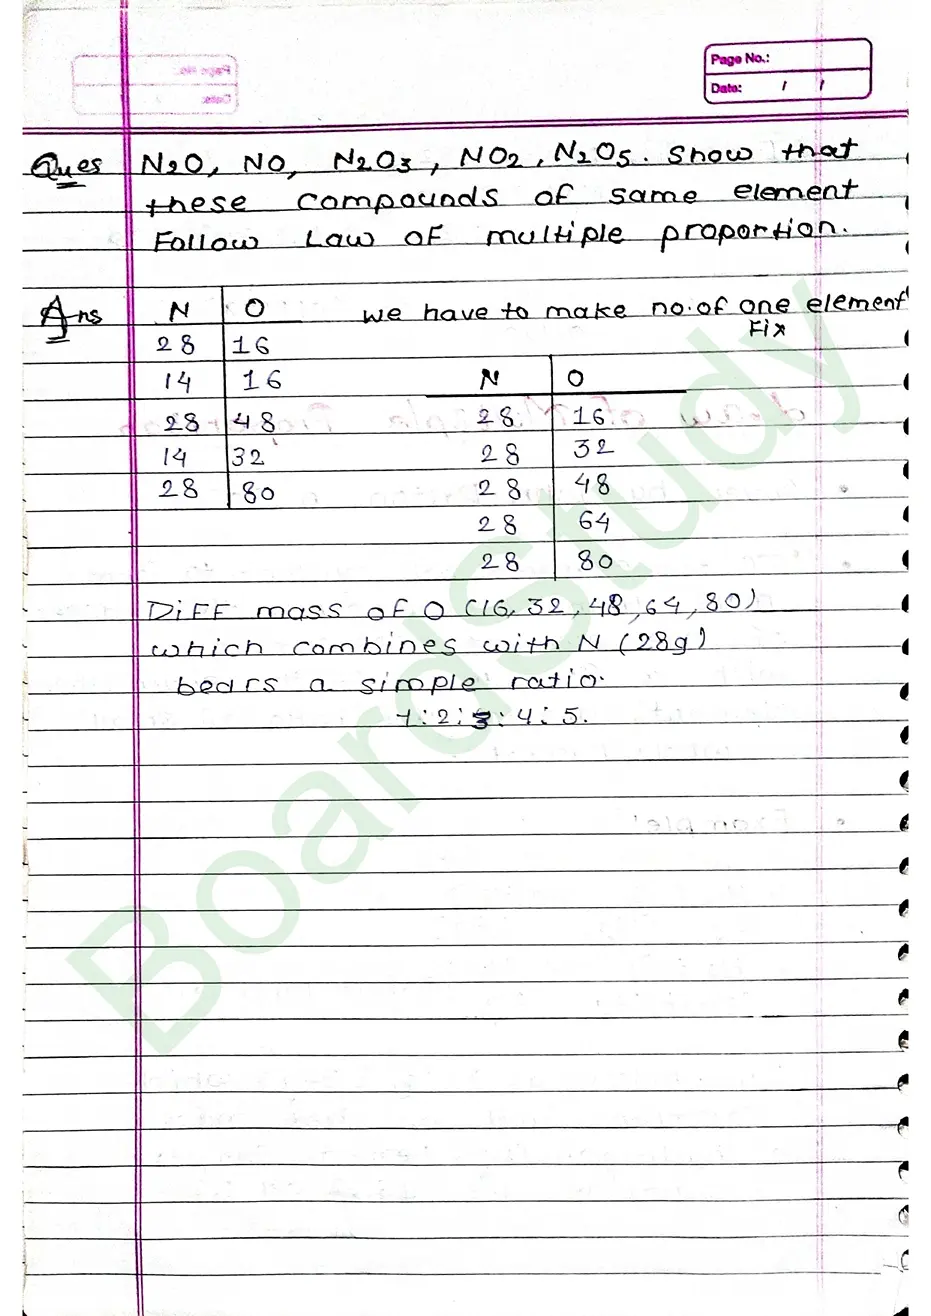 Page No.:
Date: / /
Ques N2O, NO, N2O3, NO2, N2O5. Show that
these compounds of same element
Follow Law of multiple proportion.
Ans N O we have to make no. of one element
Fix
28 16
14 16 N O
28 48 28 16
14 32 28 32
28 80 28 48
28 64
28 80
Diff mass of O (16, 32, 48, 64, 80)
which combines with N (28g)
bears a simple ratio.
1:2:3:4:5.
BoardStudy